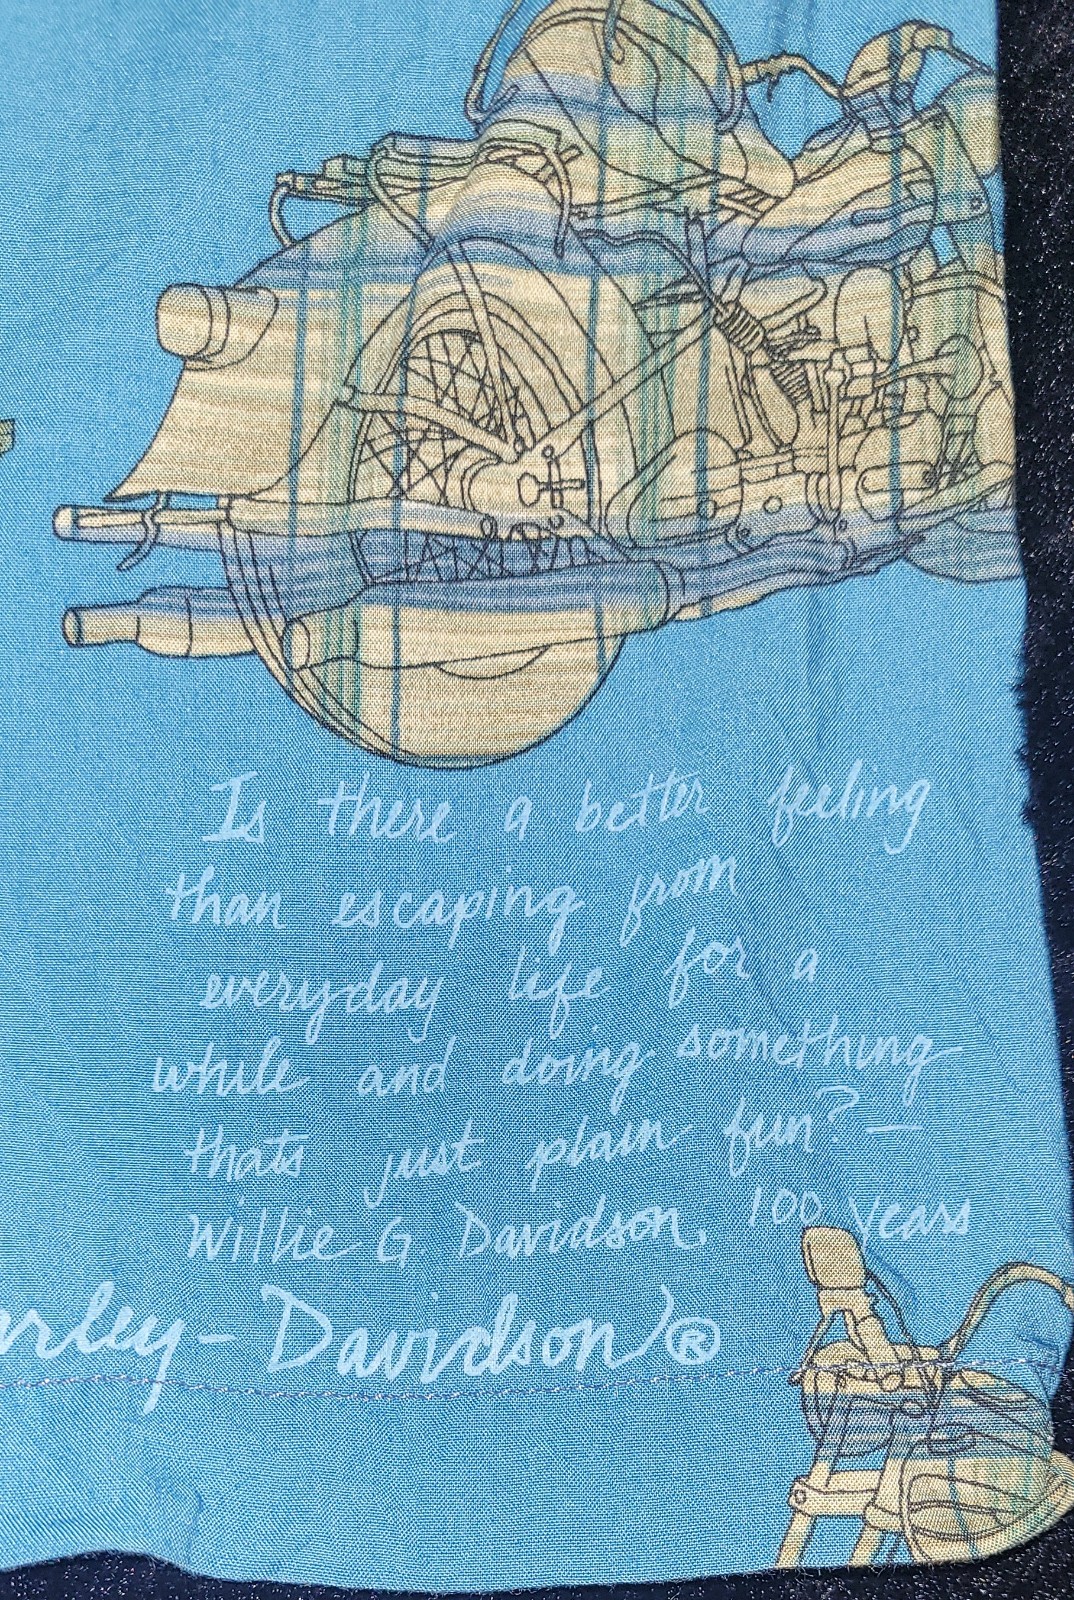 Is there a better feeling
than escaping from
everyday life for a
while and doing something
thats just plain fun? —
Willie G. Davidson, 100 years
arley-Davidson®